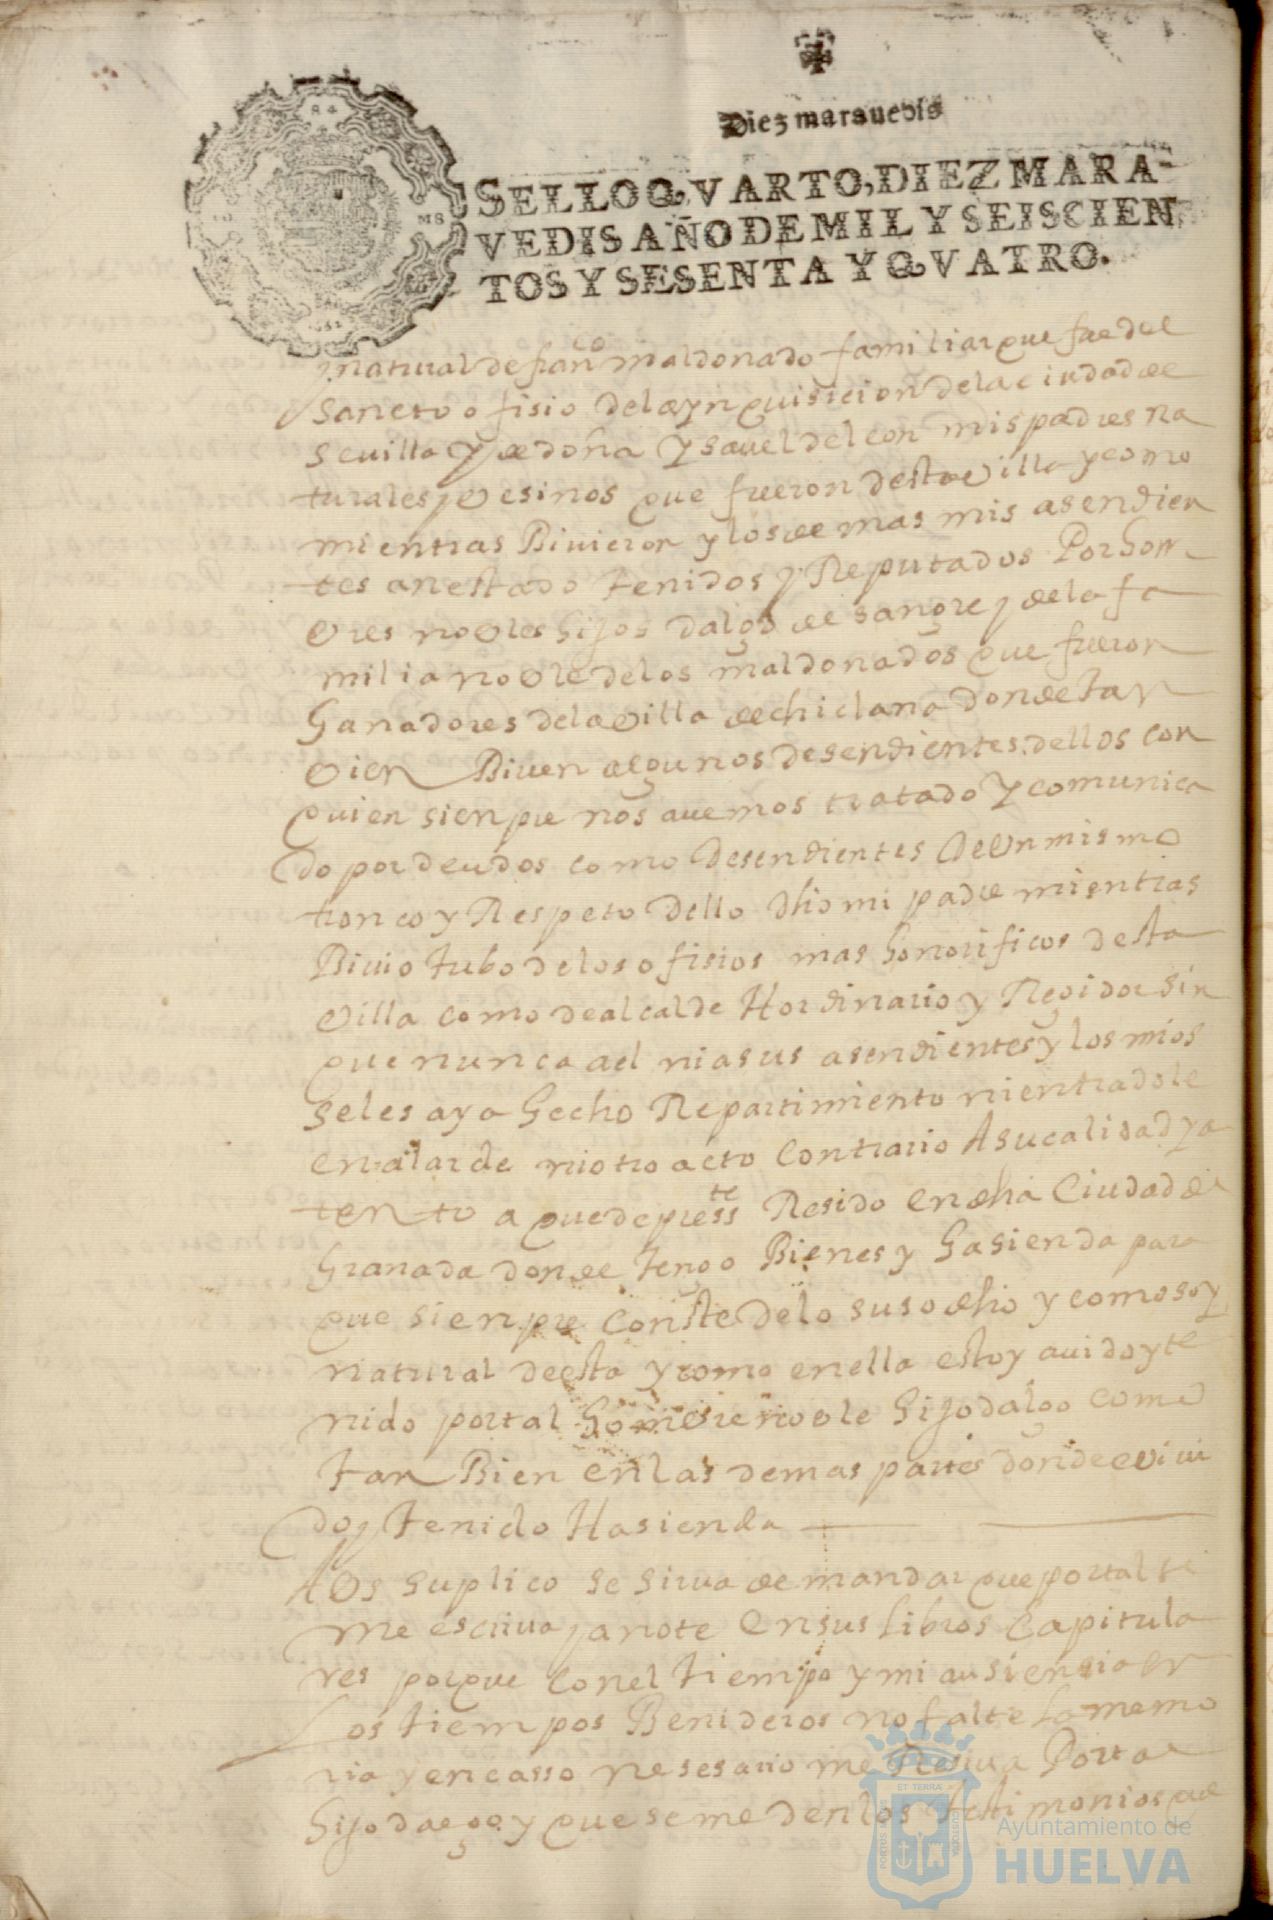 Diez marauedis
SELLO QVARTO, DIEZ MARA-
VEDIS AÑO DE MIL Y SEISCIEN
TOS Y SESENTA Y QVATRO.
y natural de franco maldonado familiar que fue del
sancto ofisio de la ynquisicion de la ciudad de
seuilla y de doña ysauel delcon mis padres na
turales y vesinos que fueron desta villa y como
mientras Biuieron y los de mas mis asendien
tes an estado tenidos y Reputados Por hon
vres novles hijos dalgo de sangre y de la fa
milia novle de los maldonados que fueron
Ganadores de la villa de chiclana donde tan
vien Biuen algunos desendientes dellos con
quien sienpre nos auemos tratado y comunica
do por deudos como desendientes de vn mismo
tronco y Respeto dello dho mi padre mientras
Biuio tubo de los ofisios mas honorificos desta
villa como de alcalde Hordinario y Regidor sin
que nunca a el ni a sus asendientes y los mios
se les aya hecho Repartimiento ni entradole
en alarde ni otro acto contrario A su calidad y a
tento a que de presste Resido en dha Ciudad de
Granada donde tengo Bienes y hasienda para
que sienpre conste de lo suso dho y como soy
natural de esta y como en ella estoy auido y te
nido por tal honvre novle hijodalgo como
tan Bien en las demas partes donde e viui
do y tenido Hasienda
A Vs suplico se sirua de mandar que por tal
me escriua y anote En sus libros Capitula
res porque con el tiempo y mi ausiensia en
Los tiempos Benideros no falte la memo
ria y en casso nesesario me Resiua Por tal
hijodalgo y que se me den los testimonios que
ET TERRÆ
PORTUS MARIS
CUSTODIA
Ayuntamiento de
HUELVA